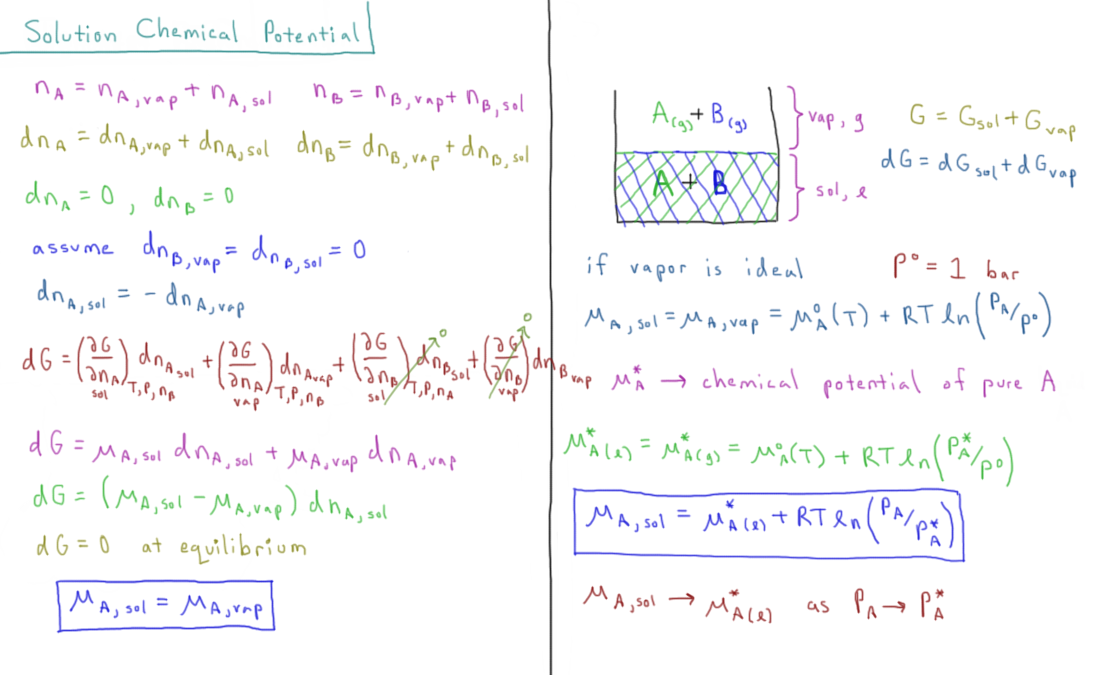 Solution Chemical Potential
n_A = n_A,vap + n_A,sol    n_B = n_B,vap + n_B,sol
dn_A = dn_A,vap + dn_A,sol    dn_B = dn_B,vap + dn_B,sol
dn_A = 0 , dn_B = 0
assume dn_B,vap = dn_B,sol = 0
dn_A,sol = - dn_A,vap
dG = (∂G/∂n_A sol)_T,P,n_B dn_A sol + (∂G/∂n_A vap)_T,P,n_B dn_A vap + (∂G/∂n_B sol)_T,P,n_A dn_B sol →0 + (∂G/∂n_B vap) dn_B vap →0
dG = μ_A,sol dn_A,sol + μ_A,vap dn_A,vap
dG = (μ_A,sol - μ_A,vap) dn_A,sol
dG = 0 at equilibrium
μ_A,sol = μ_A,vap
A(g) + B(g)
vap, g
A + B
sol, l
G = G_sol + G_vap
dG = dG_sol + dG_vap
if vapor is ideal    P° = 1 bar
μ_A,sol = μ_A,vap = μ°_A(T) + RT ln(P_A/P°)
μ*_A → chemical potential of pure A
μ*_A(l) = μ*_A(g) = μ°_A(T) + RT ln(P*_A/P°)
μ_A,sol = μ*_A(l) + RT ln(P_A/P*_A)
μ_A,sol → μ*_A(l) as P_A → P*_A